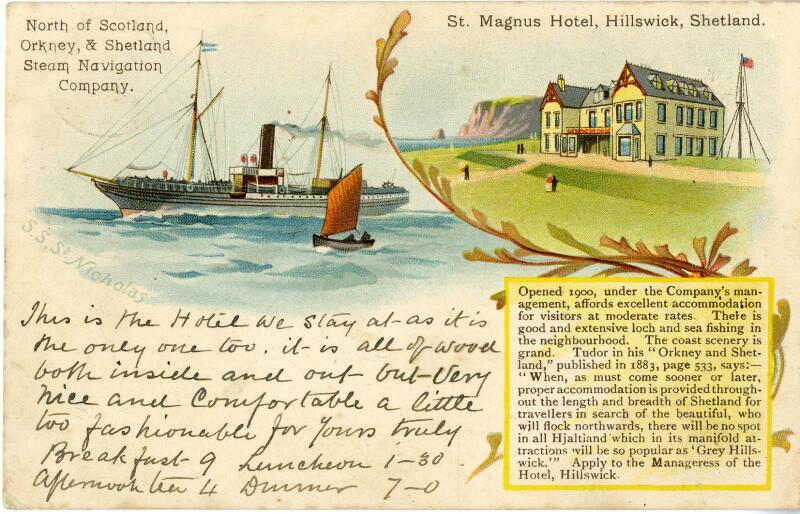 North of Scotland,
Orkney, & Shetland
Steam Navigation
Company.
St. Magnus Hotel, Hillswick, Shetland.
S.S. St Nicholas
This is the Hotel we stay at - as it is
the only one too. it is all of wood
both inside and out but very
nice and Comfortable a little
too fashionable for Yours truly
Breakfast 9 Luncheon 1-30
Afternoon tea 4 Dinner 7-0
Opened 1900, under the Company's man-
agement, affords excellent accommodation
for visitors at moderate rates. There is
good and extensive loch and sea fishing in
the neighbourhood. The coast scenery is
grand. Tudor in his "Orkney and Shet-
land," published in 1883, page 533, says:—
"When, as must come sooner or later,
proper accommodation is provided through-
out the length and breadth of Shetland for
travellers in search of the beautiful, who
will flock northwards, there will be no spot
in all Hjaltland which in its manifold at-
tractions will be so popular as 'Grey Hills-
wick.'" Apply to the Manageress of the
Hotel, Hillswick.